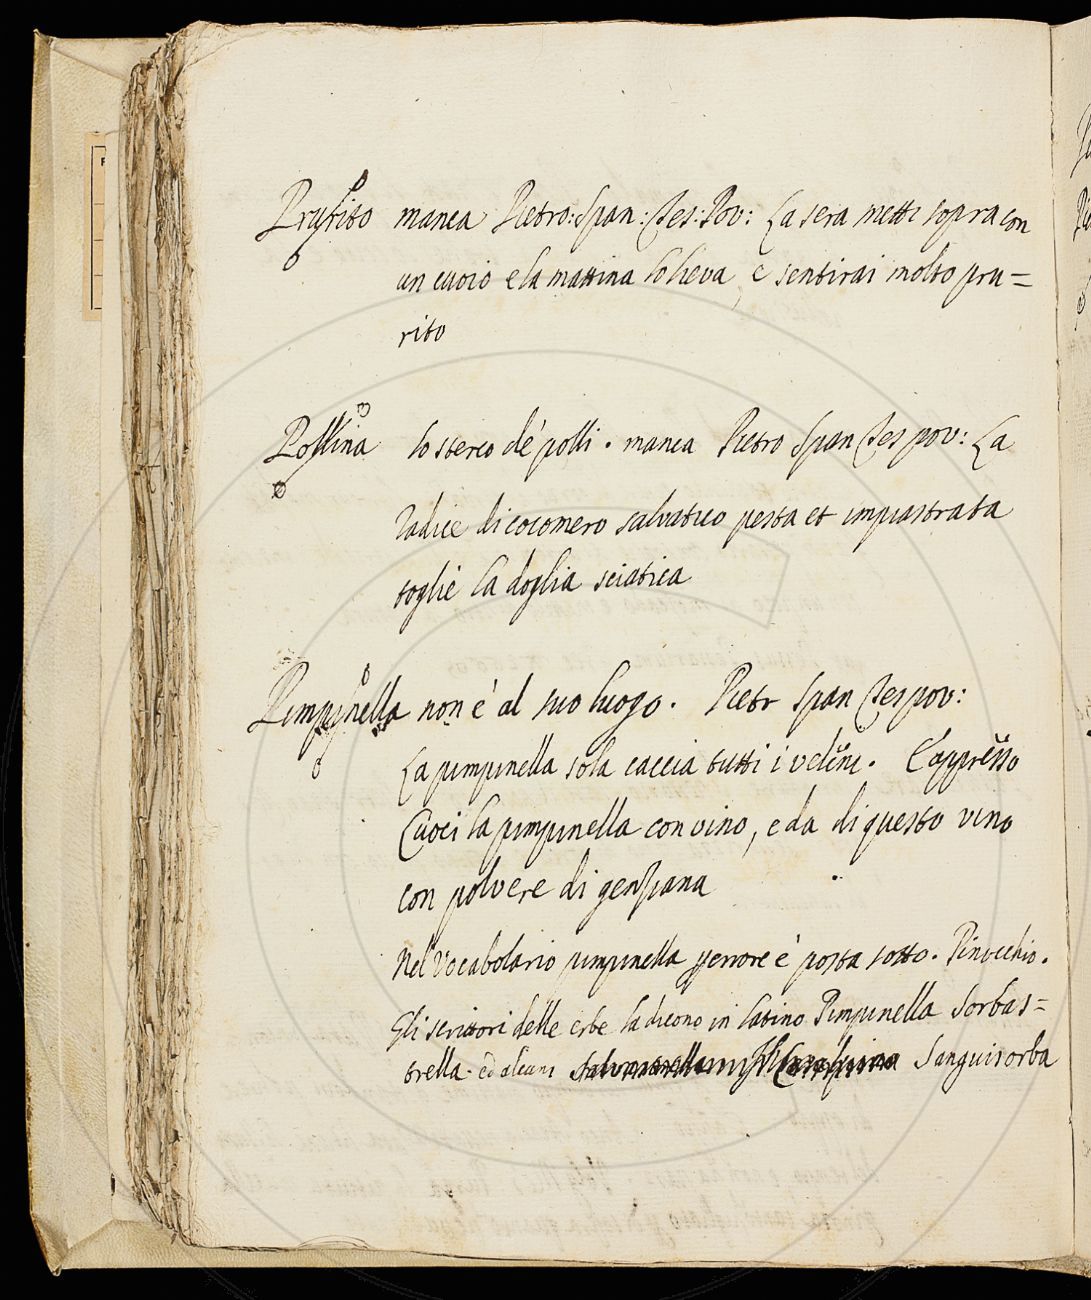 Prurito manca Pietro: Span: Tes: Pov: La sera metti sopra con
un cuoio e la mattina lo lieva, e sentirai molto pru=
rito
Pollina lo sterco de' polli. manca Pietro Span Tes pov: La
radice di cocomero salvatico pesta et impiastrata
toglie la doglia sciatica
Pimpinella non è al suo luogo. Pietr Span Tes pov:
La pimpinella sola caccia tutti i veleni. E appresso
Cuoci la pimpinella con vino, e da di questo vino
con polvere di genziana
Nel Vocabolario pimpinella per errore è posta sotto. Pinocchio.
Gli scrittori delle erbe la dicono in latino Pimpinella Sorbas=
trella. ed alcuni Sanguisorba